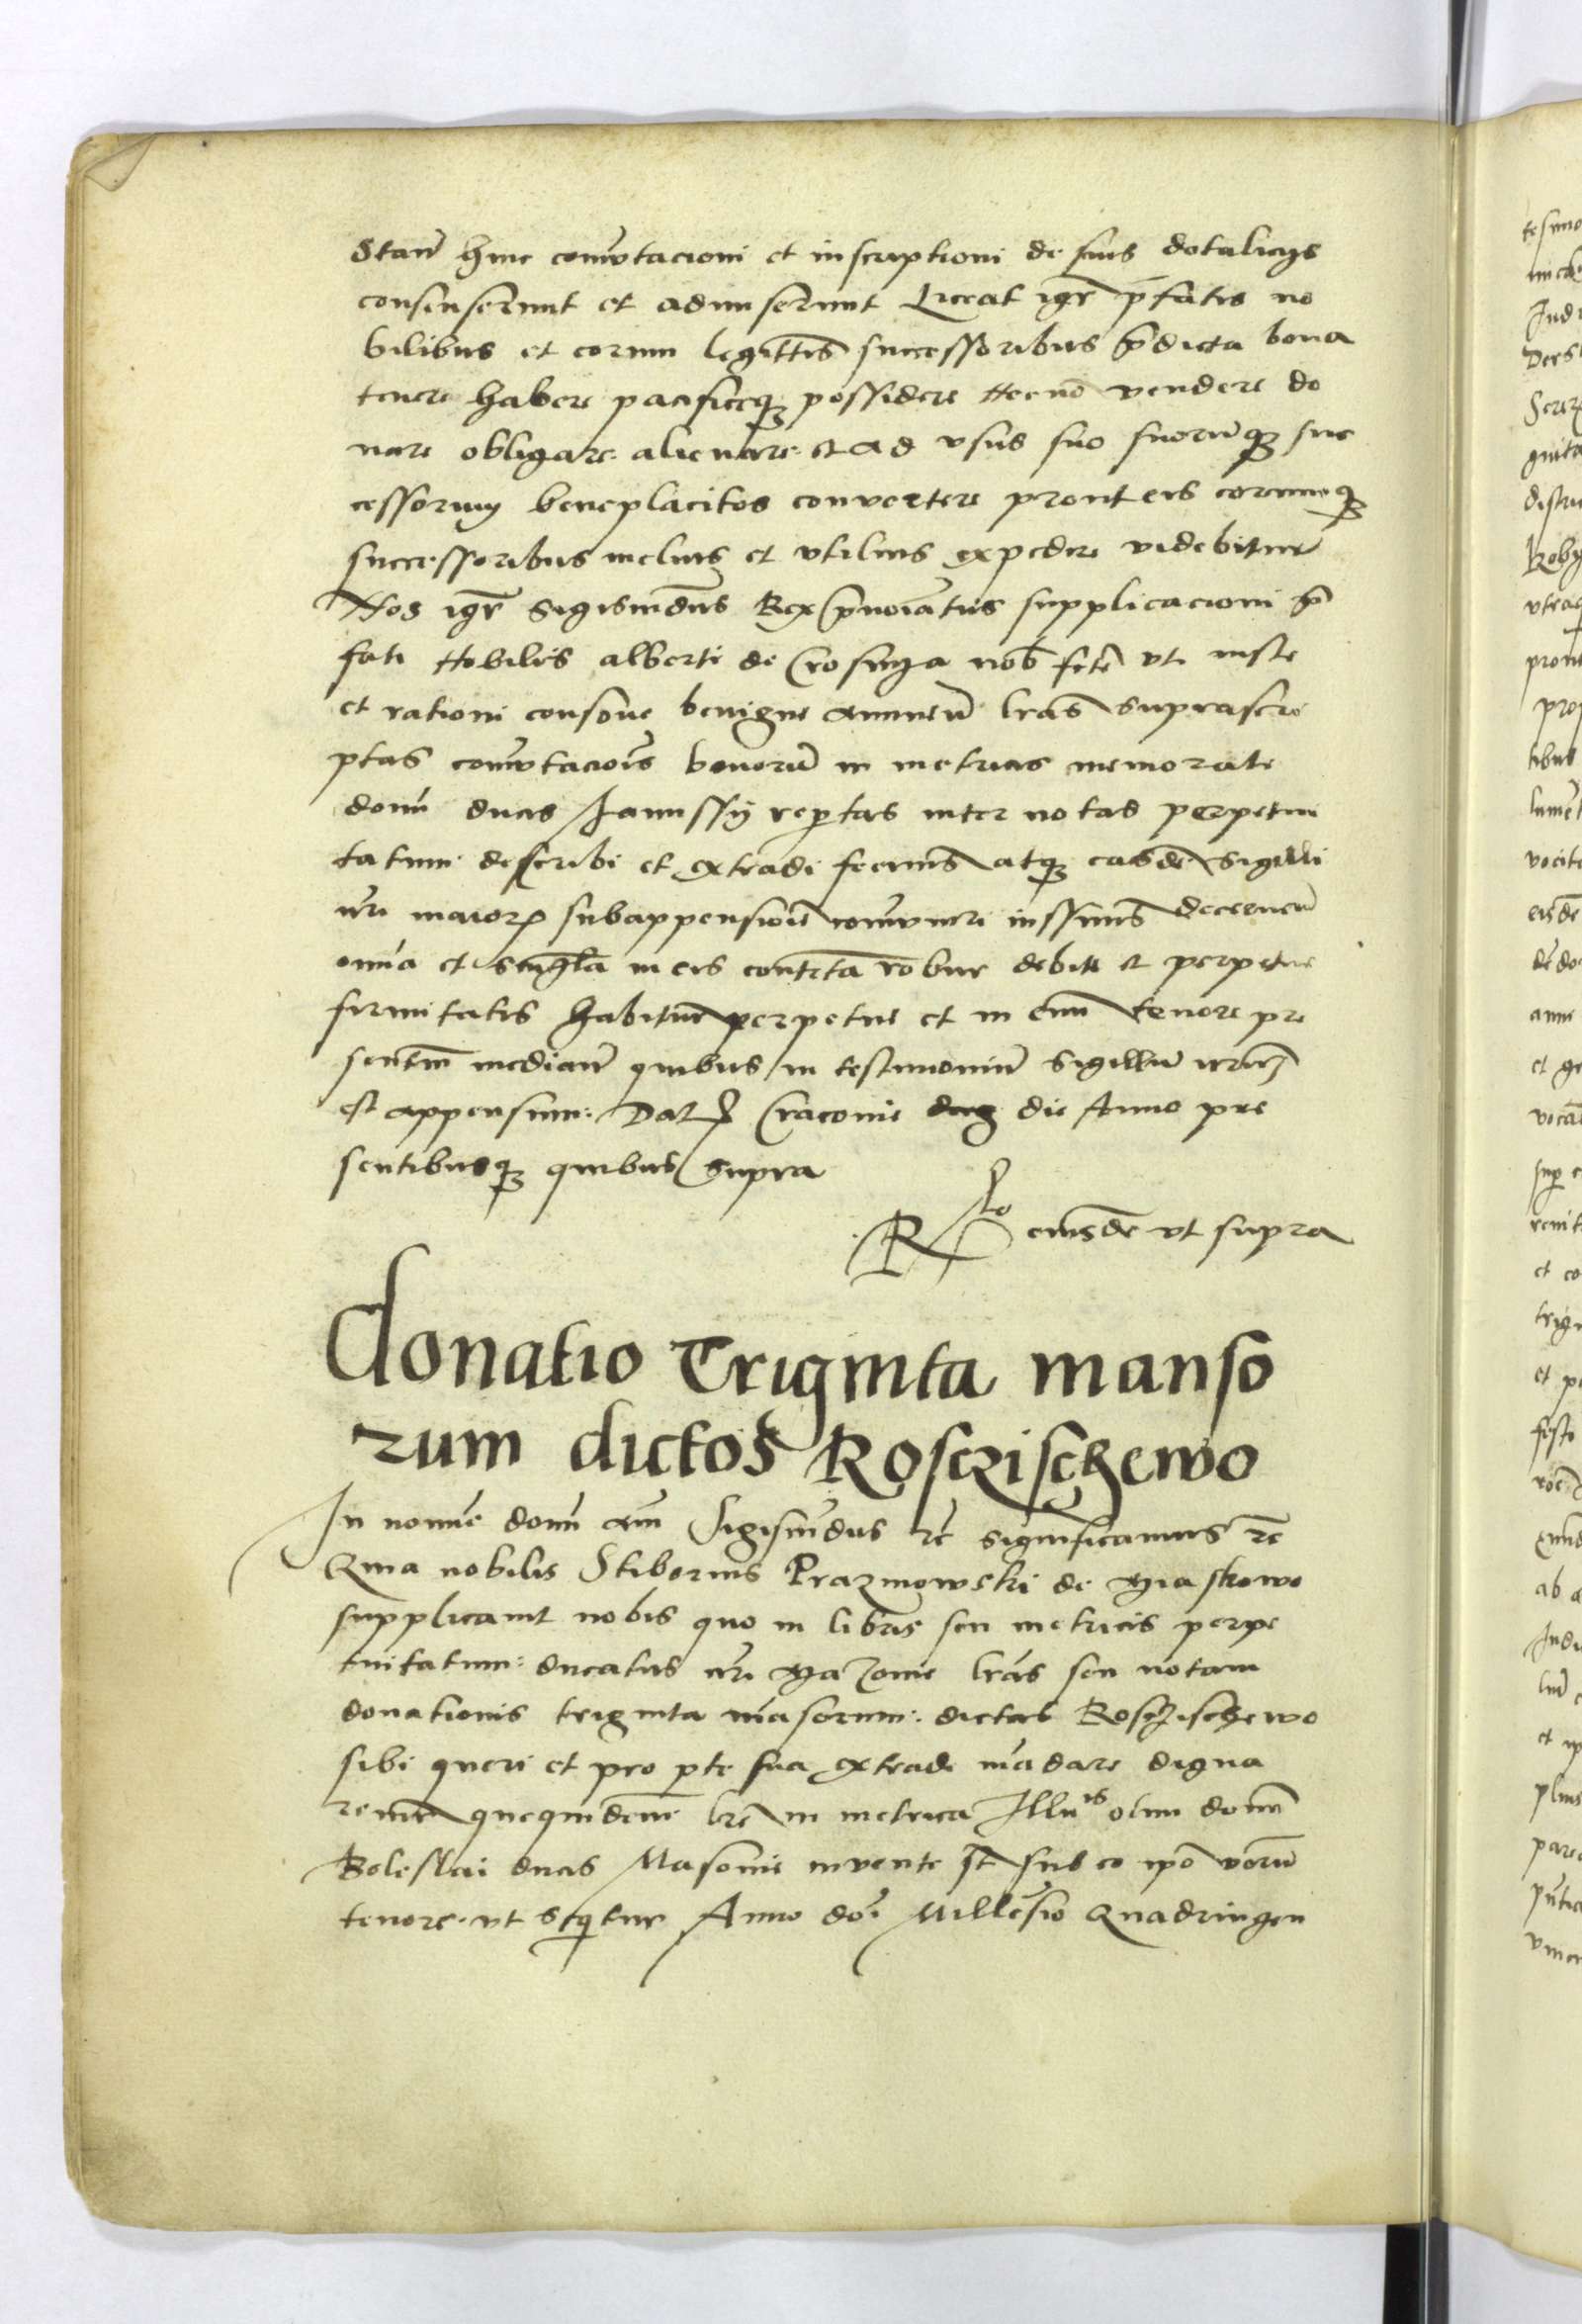 Stan̄ huic comūtacioni et inscriptioni de suis dotalicijs
consenserunt et admiserunt Liceat igr̄ p̄fatis no
bilibus et eorum legittīs successoribus p̄dicta bona
tenere habere pacificeqꝫ possidere Necnō vendere do
nare obligare alienare et ad vsus suo suorūqꝫ suc
cessorum beneplacitos convertere prout eis eorumqꝫ
successoribus melius et vtilius expedire videbitur
Nos igr̄ Sigismūdus Rex p̄noīatus supplicacioni p̄
fati Nobilis alberti de Crosnya nob̄ fctē vti iuste
et rationi consone benigne annuen̄ lr̄as suprascri
ptas comūtacōis bonorū in metricas memorate
domī ducis Janussij rep̄tas inter notas perpetui
tatum describi et extradi fecimus atqꝫ easdē sigilli
nr̄i maioris subappensiōe cōmuniri iussimus decernen̄
om̄ia et singl̄a in eis contēta robur debite et perpetue
firmitatis habitur̄ perpetue et in eum̄ tenore pre
sentm̄ median̄ quibus in testimoniū sigillū nr̄m
est appensum Dat Cracouie die Anno pre
sentibusqꝫ quibus supra
R̄to eiusdē vt supra
Donatio Triginta manso
rum dictos Roscrischewo
In nomīe domī am̄ Sigismūdus rc̄ significamus rc̄
Quia nobilis Stiborius Prazmowski de Myaskowo
supplicauit nobis quo in libris seu metricis perpe
tuitatum ducatus nr̄i Mazouie lr̄as seu notam
donationis triginta māsorum dictas Rosczischewo
sibi queri et pro pte sua extradi mādare digna
remur quequidem lr̄e in metrica Illuis olim domī
Boleslai ducis Masouie invente st̄ sub eo ip̄o verū
tenore vt seq̄tur Anno doī Millēsio Quadringen